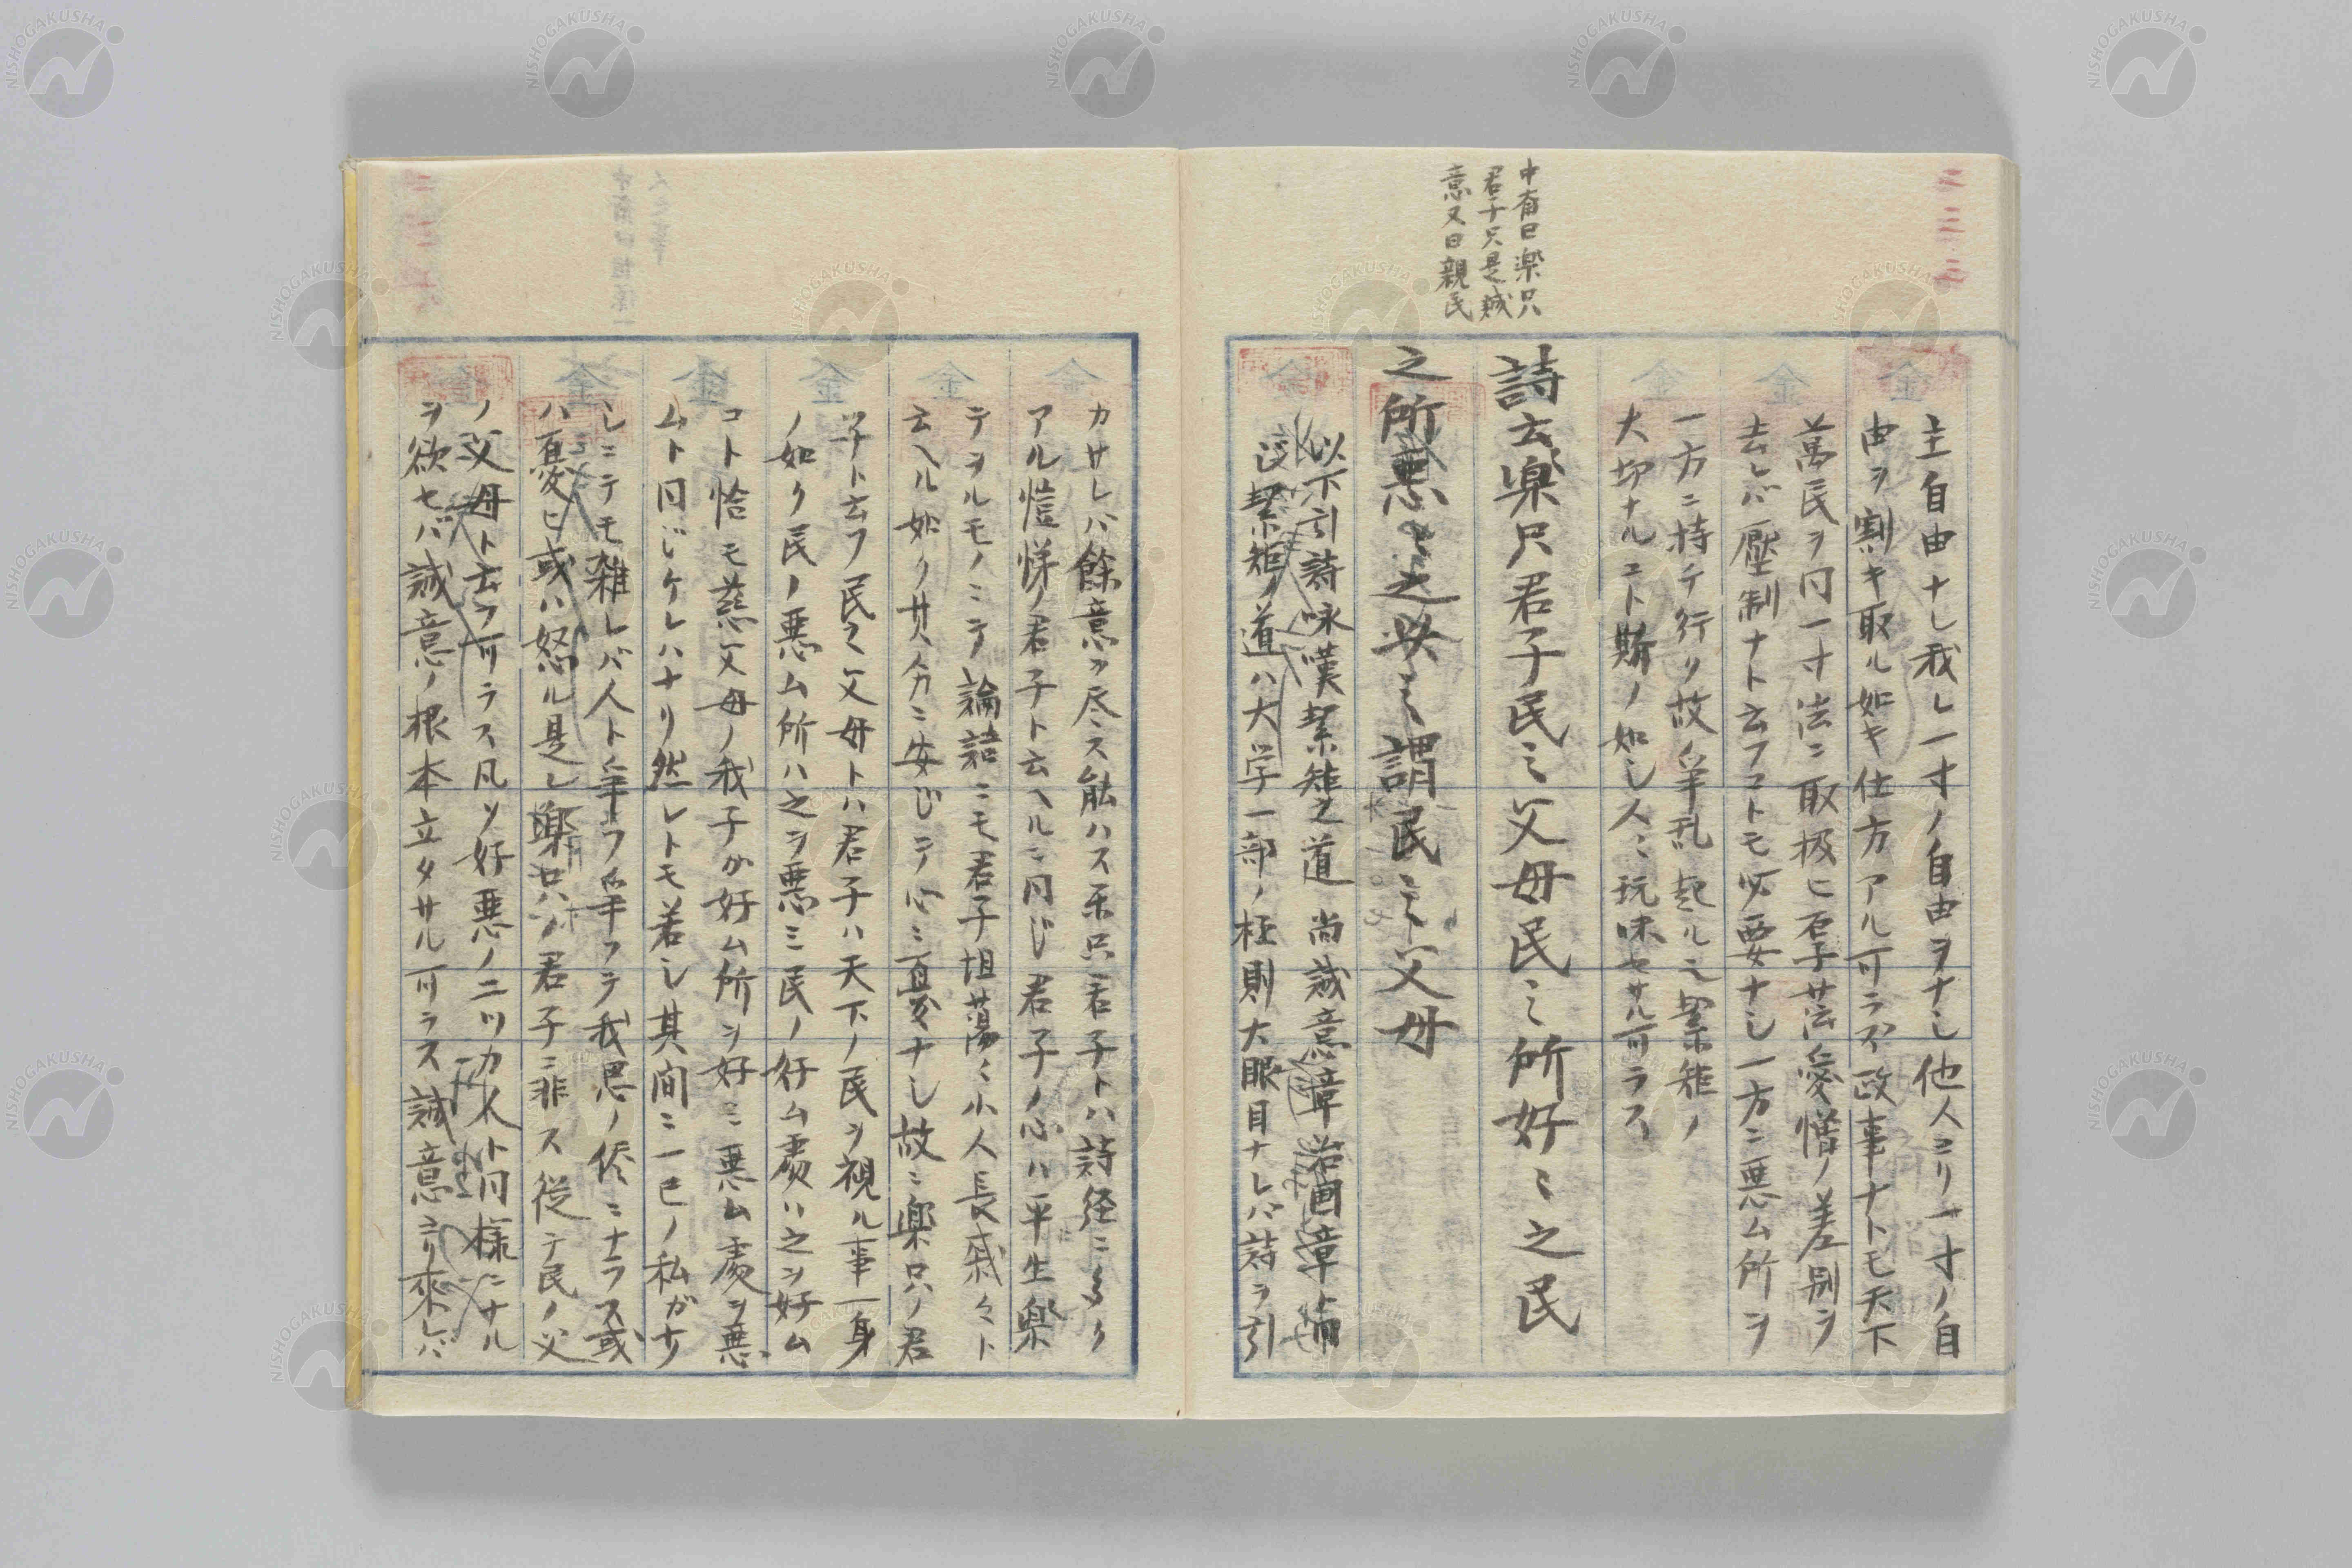 中斎曰楽只
君子只是誠
意又曰親民
主自由ナレ我レ一寸ノ自由ヲナレ他人ヨリ一寸ノ自
由ヲ割キ取ル如キ仕方アル可ラズ政事ナトモ天下
萬民ヲ同一寸法ニ取扱ヒ石子寸法愛憎ノ差別ヲ
去レバ壓制ナト云フコトモ必要ナシ一方ニ悪ム所ヲ
一方ニ持テ行ク故争乱起ル之絜矩ノ
大切ナルコト斯ノ如シ人々玩味セサル可ラス
詩云楽只君子民之父母民之所好々之民
之所悪々之此之謂民之父母
以下引詩咏嘆絜矩之道 尚誠意章治国章
絜矩ノ道ハ大学一部ノ極則大眼目ナレバ詩ヲ引
カサレバ餘意ヲ尽ス能ハス楽只君子トハ詩経ニ多ク
アル愷悌ノ君子ト云ヘルニ同じ君子ノ心ハ平生楽
テヲルモノニテ論語ニモ君子坦蕩々小人長戚々ト
云ヘル如ク其分ニ安じテ心ニ憂ナし故ニ楽只ノ君
子ト云フ民之父母トハ君子ハ天下ノ民ヲ視ル事一身
ノ如ク民ノ悪ム所ハ之ヲ悪ミ民ノ好ム處ハ之ヲ好ム
コト恰モ慈父母ノ我子が好ム所ヲ好ミ悪ム處ヲ悪
ムト同じケレハナリ然レトモ若し其間ニ一己ノ私ガ少
しニテモ雜レバ人ト争フ争フテ我思ノ侭ニナラス或
ハ憂ヒ或ハ怒ル是レ楽只ノ君子ニ非ス従テ民ノ父
ノ父母ト云フ可ラス凡ソ好悪ノ二ツカ人ト同様ニナル
ヲ欲セバ誠意ノ根本立タサル可ラス誠意ヨリ來レバ
NISHOGAKUSHA